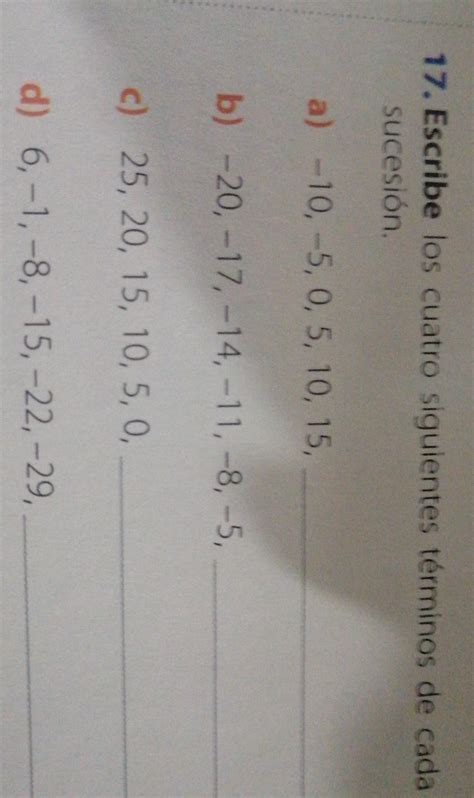 17. Escribe los cuatro siguientes términos de cada
sucesión.
a) −10, −5, 0, 5, 10, 15,
b) −20, −17, −14, −11, −8, −5,
c) 25, 20, 15, 10, 5, 0,
d) 6, −1, −8, −15, −22, −29,